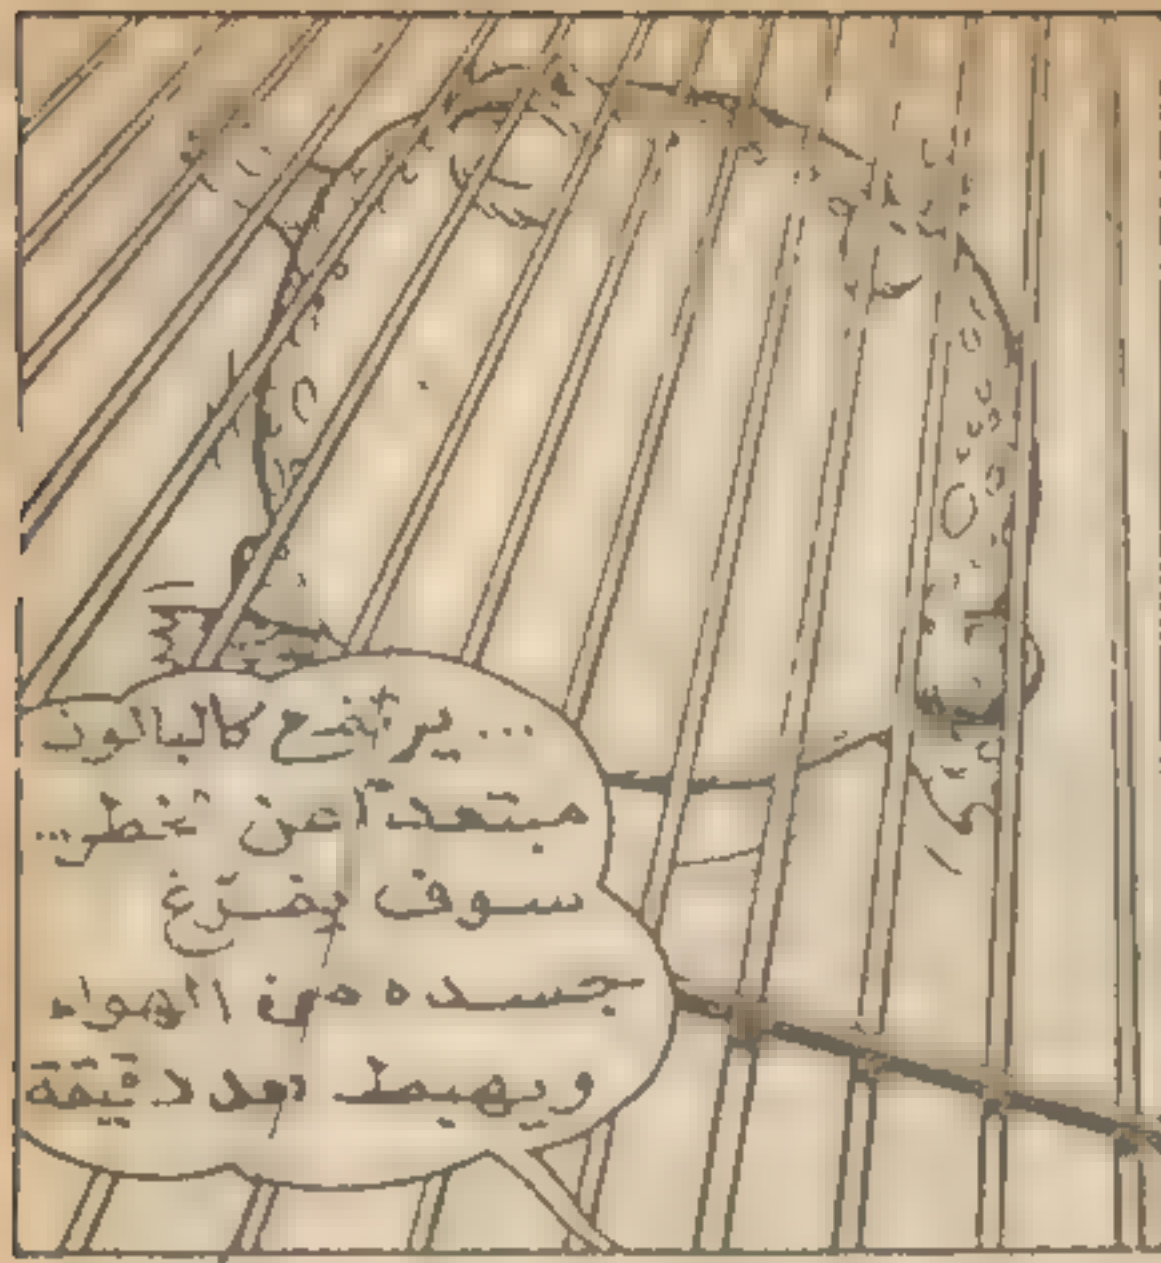 ... يرتفع كالبالون
مبتعداً عن الخطر..
سوف يفرّغ
جسده من الهواء
ويهبط بعد دقيقة